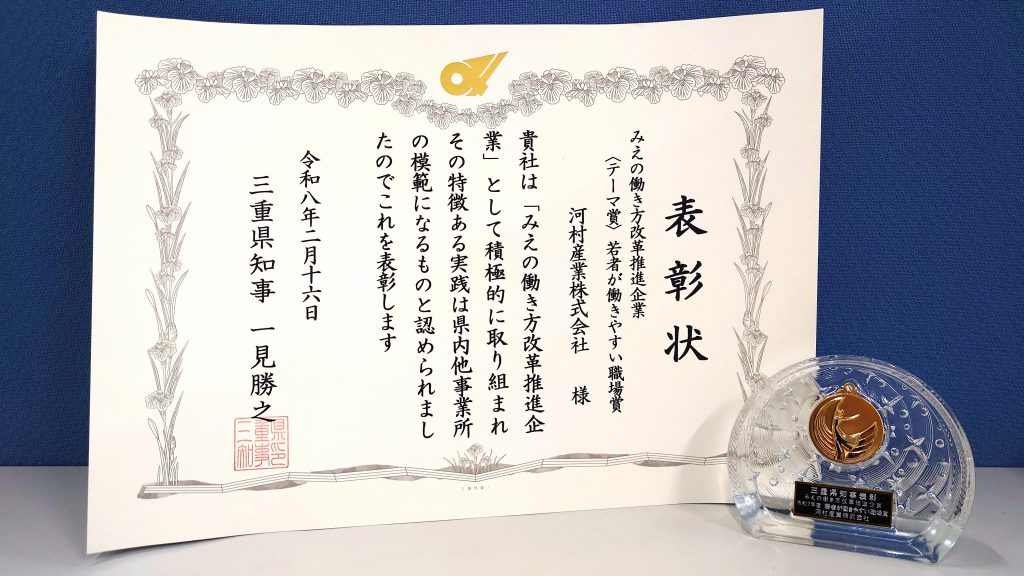 表彰状
みえの働き方改革推進企業
〈テーマ賞〉若者が働きやすい職場賞
河村産業株式会社 様
貴社は「みえの働き方改革推進企
業」として積極的に取り組まれ
その特徴ある実践は県内他事業所
の模範になるものと認められまし
たのでこれを表彰します
令和八年二月十六日
三重県知事 一見勝之
三重県知事表彰
みえの働き方改革推進企業
令和7年度 若者が働きやすい職場賞
河村産業株式会社